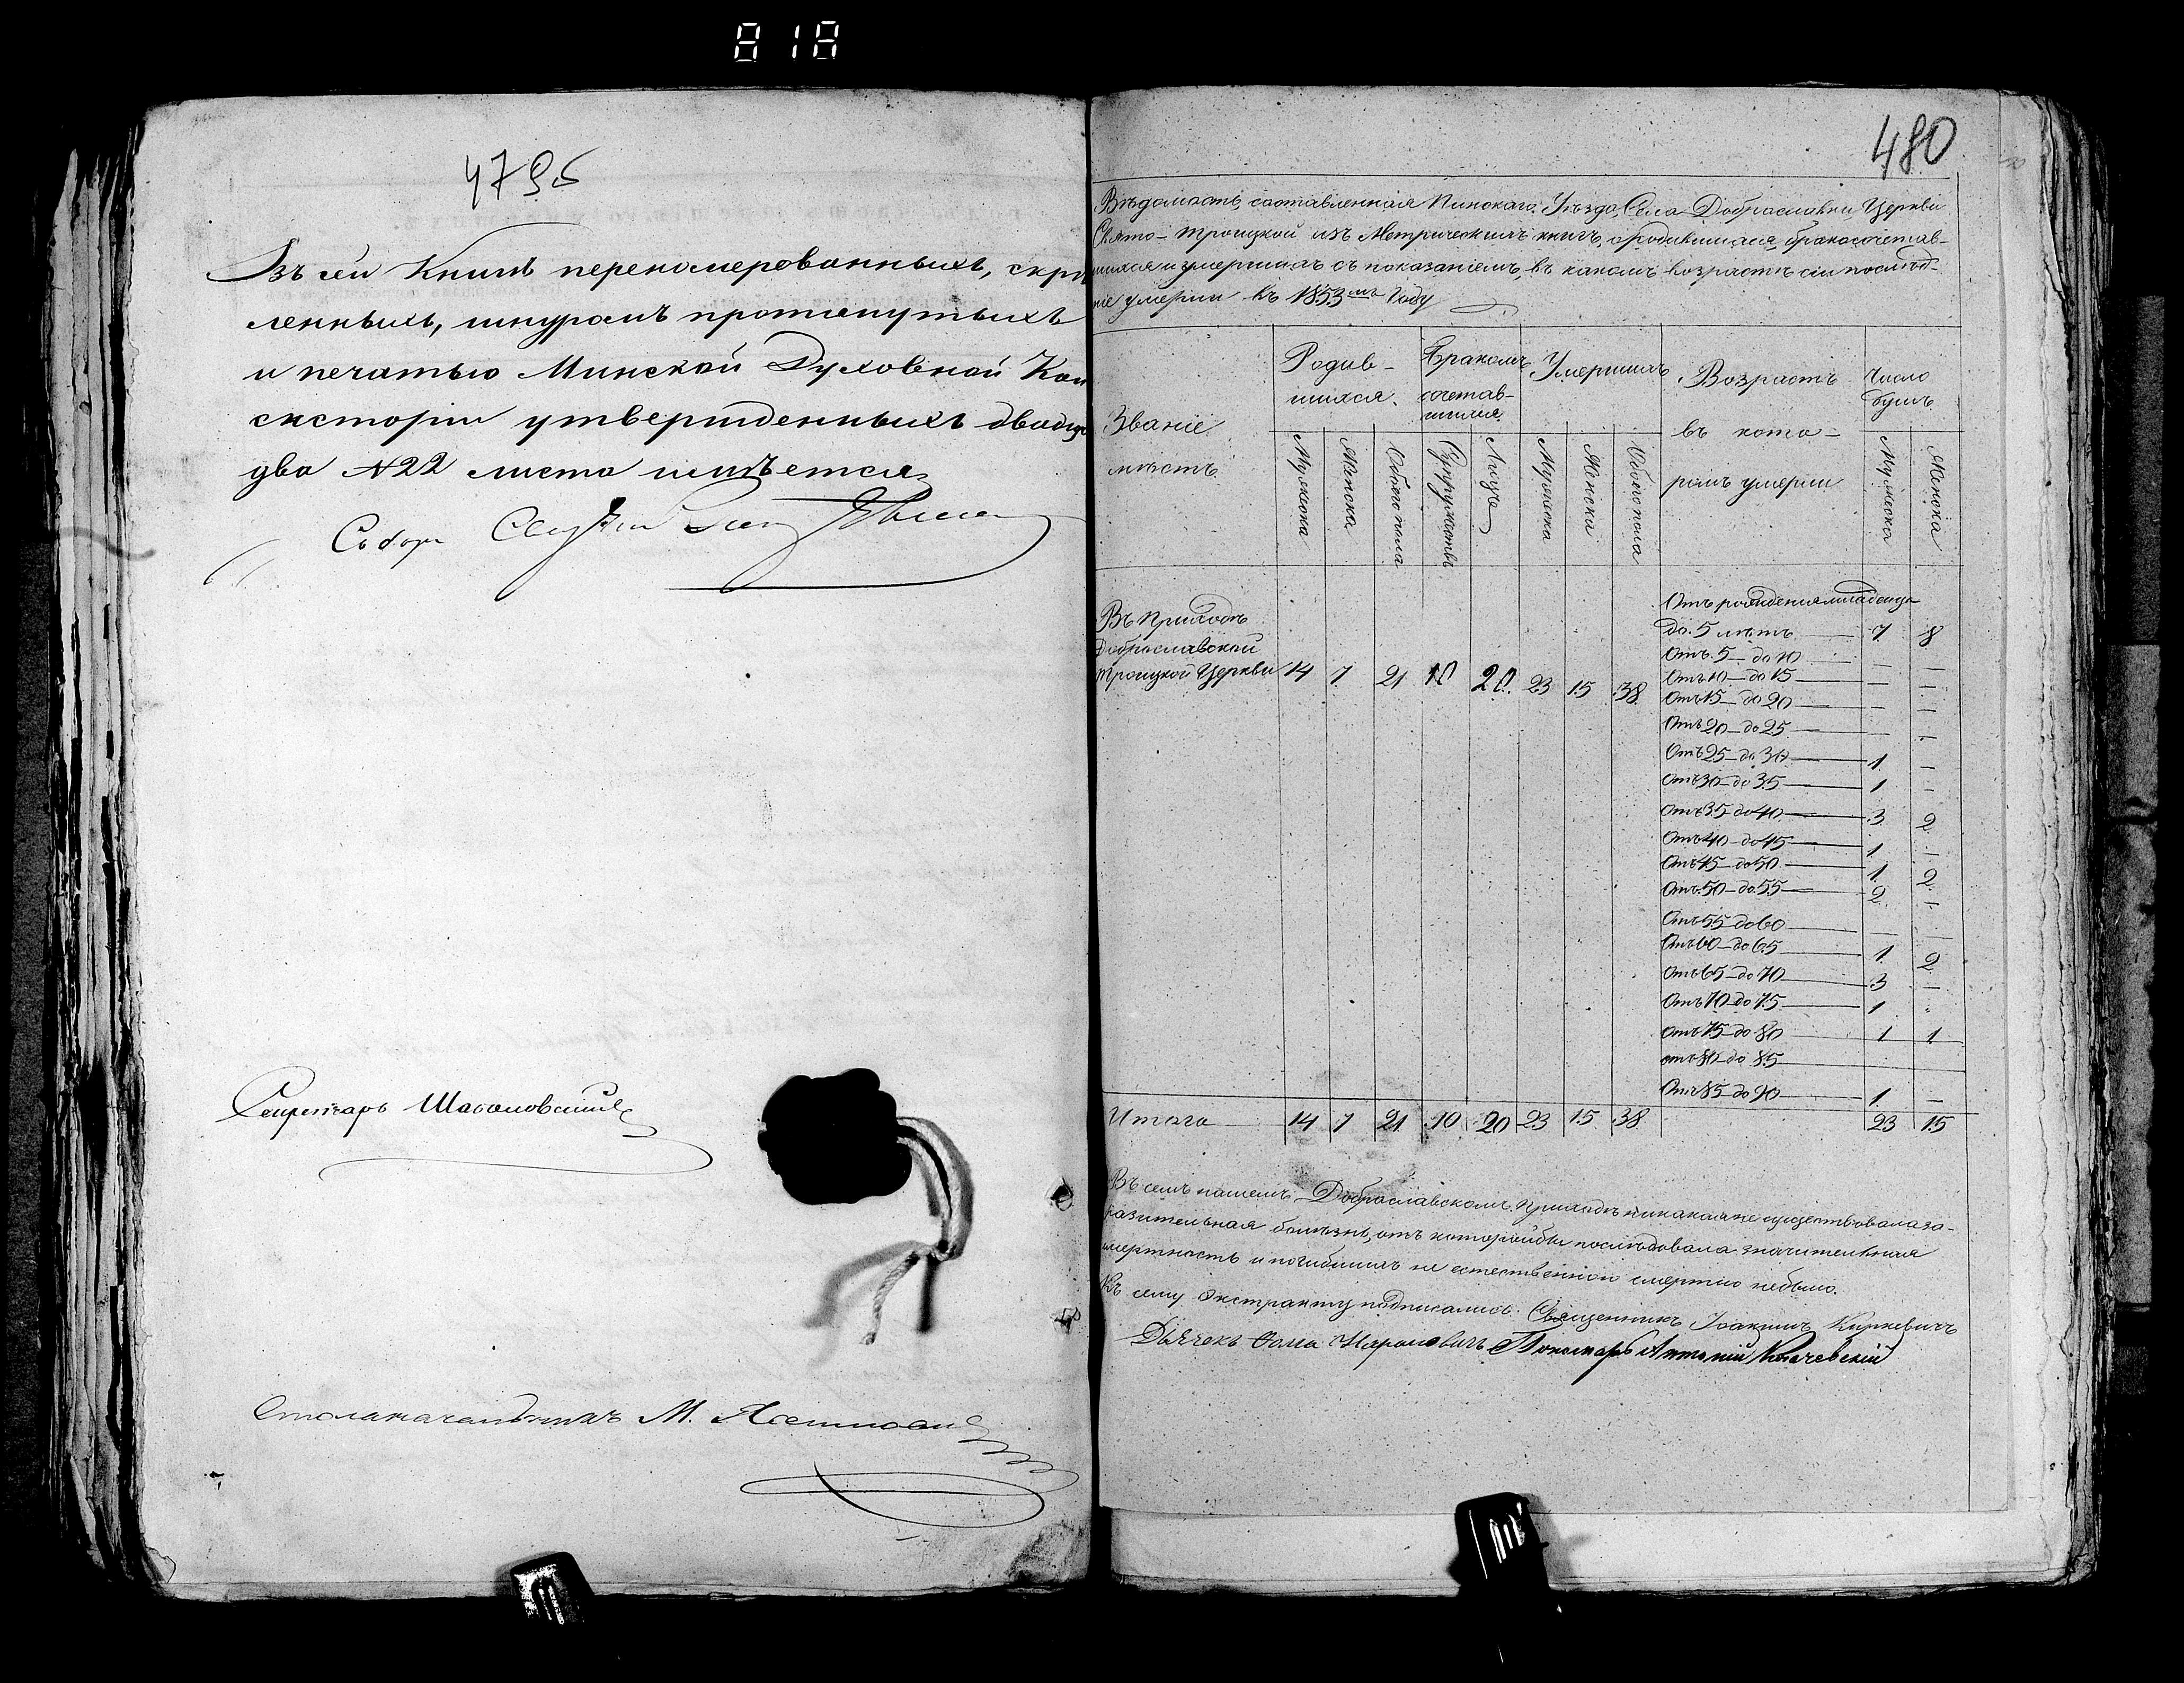 818
479 об
Въ сей Книгѣ перенумерованныхъ, скрѣп
ленныхъ, шнуромъ протянутыхъ
и печатью Минской Духовной Кон
систоріи утвержденныхъ двадцать
два №22 листа имѣется
Секретарь
Столоначальникъ М.
480
Вѣдомость, составленная Пинскаго Уѣзда, Села Доброславки Церкви
Свято-Троицкой изъ Метрическихъ книгъ, о родившихся, бракосочетав-
шихся и умершихъ съ показаніемъ, въ какомъ возрастѣ сіи послѣд-
ніе умерли въ 1853мъ Году
Званіе мѣстъ
Родив-
шихся
Бракомъ
сочетав-
шихся
Умершихъ
Возрастъ
въ кото-
ромъ умерли
Число
душъ
Мужеска Женска Обоего пола Супружествъ Лицъ Мужеска Женска Обоего пола Мужеска Женска
Въ Приходѣ
Доброславской
Троицкой Церкви 14 7 21 10 20 23 15 38
Отъ рожденія младенца
до 5 лѣтъ — 7 8
Отъ 5 — до 10 — —
Отъ 10 — до 15 — — —
Отъ 15 — до 20 — — —
Отъ 20 — до 25 — — —
Отъ 25 — до 30 — 1 —
Отъ 30 — до 35 — 1 —
Отъ 35 — до 40 — 3 2
Отъ 40 — до 45 — 1 —
Отъ 45 — до 50 — 1 2
Отъ 50 — до 55 — 2 —
Отъ 55 — до 60 — — —
Отъ 60 — до 65 — 1 2
Отъ 65 — до 70 — 3 —
Отъ 70 — до 75 — 1 —
Отъ 75 — до 80 — 1 1
отъ 80 — до 85 —
Отъ 85 — до 90 — 1 —
Итого 14 7 21 10 20 23 15 38 23 15
Въ семъ нашемъ Доброславскомъ Приходѣ никакая не существовала за-
разительная болѣзнь, отъ которой бы послѣдовала значительная
смертность и погибшихъ не естественною смертію небыло.
Къ сему Экстракту подписались: Священникъ Іоакимъ Киркевичъ
Дьячекъ Ѳома Пономарь Антоній